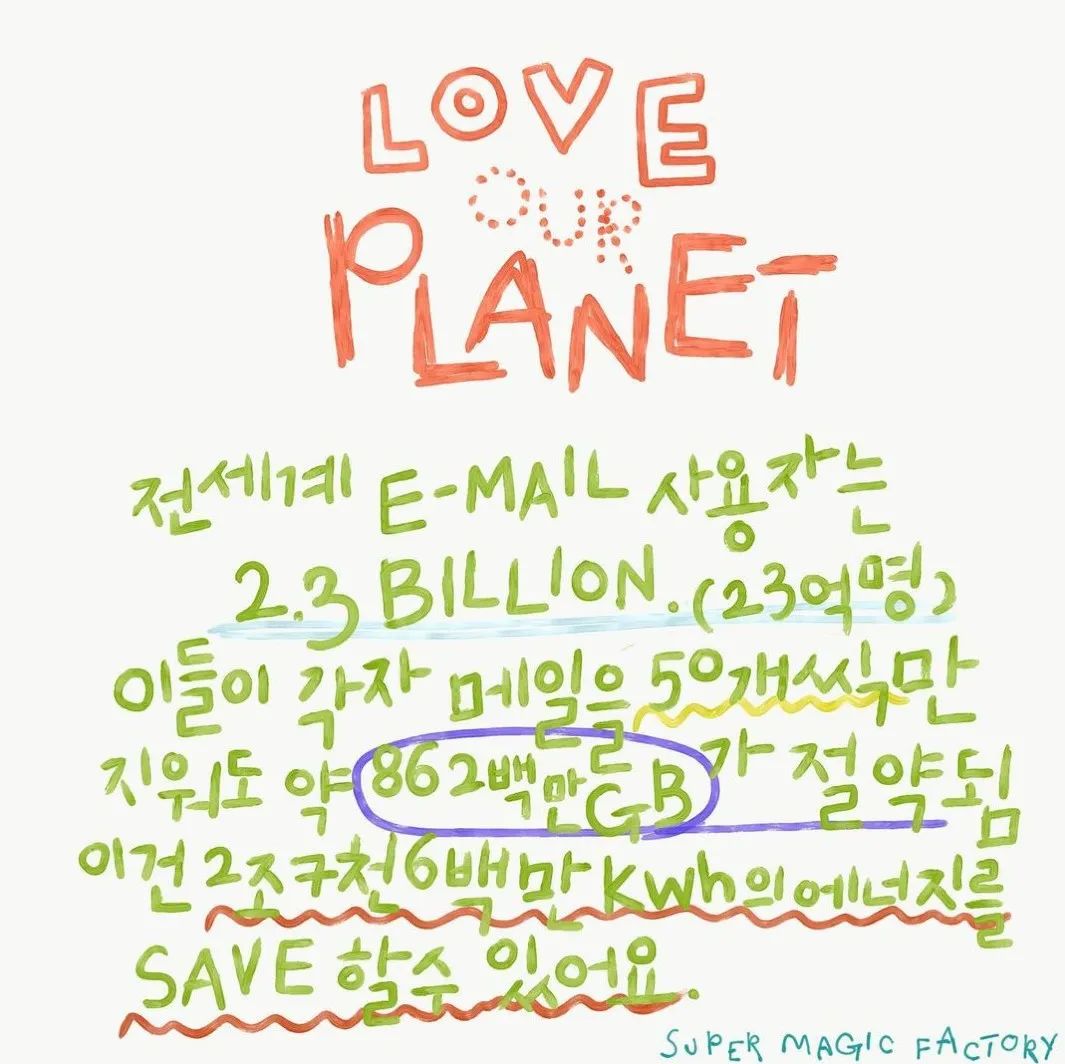 LOVE
OUR
PLANET
전세계 E-MAIL 사용자는
2.3 BILLION. (23억명)
이들이 각자 메일을 50개씩만
지워도 약 862백만GB가 절약됨
이건 2조구천6백만 Kwh의 에너지를
SAVE 할수 있어요.
SUPER MAGIC FACTORY